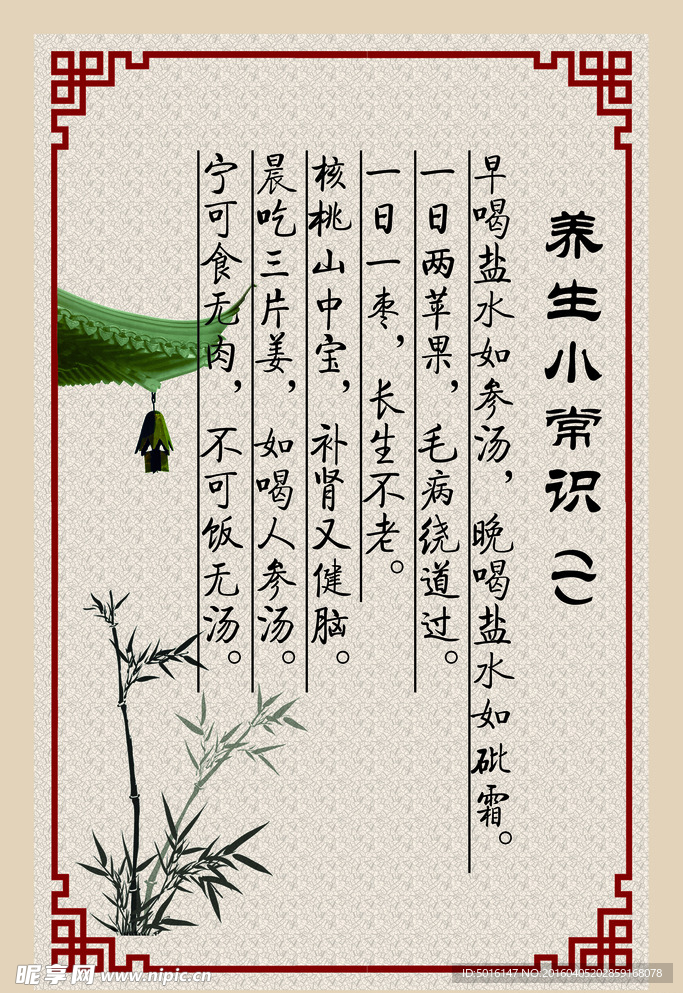 养生小常识（二）
早喝盐水如参汤，晚喝盐水如砒霜。
一日两苹果，毛病绕道过。
一日一枣，长生不老。
核桃山中宝，补肾又健脑。
晨吃三片姜，如喝人参汤。
宁可食无肉，不可饭无汤。
昵享网 www.nipic.cn
ID:5016147 NO:20160405202859168078